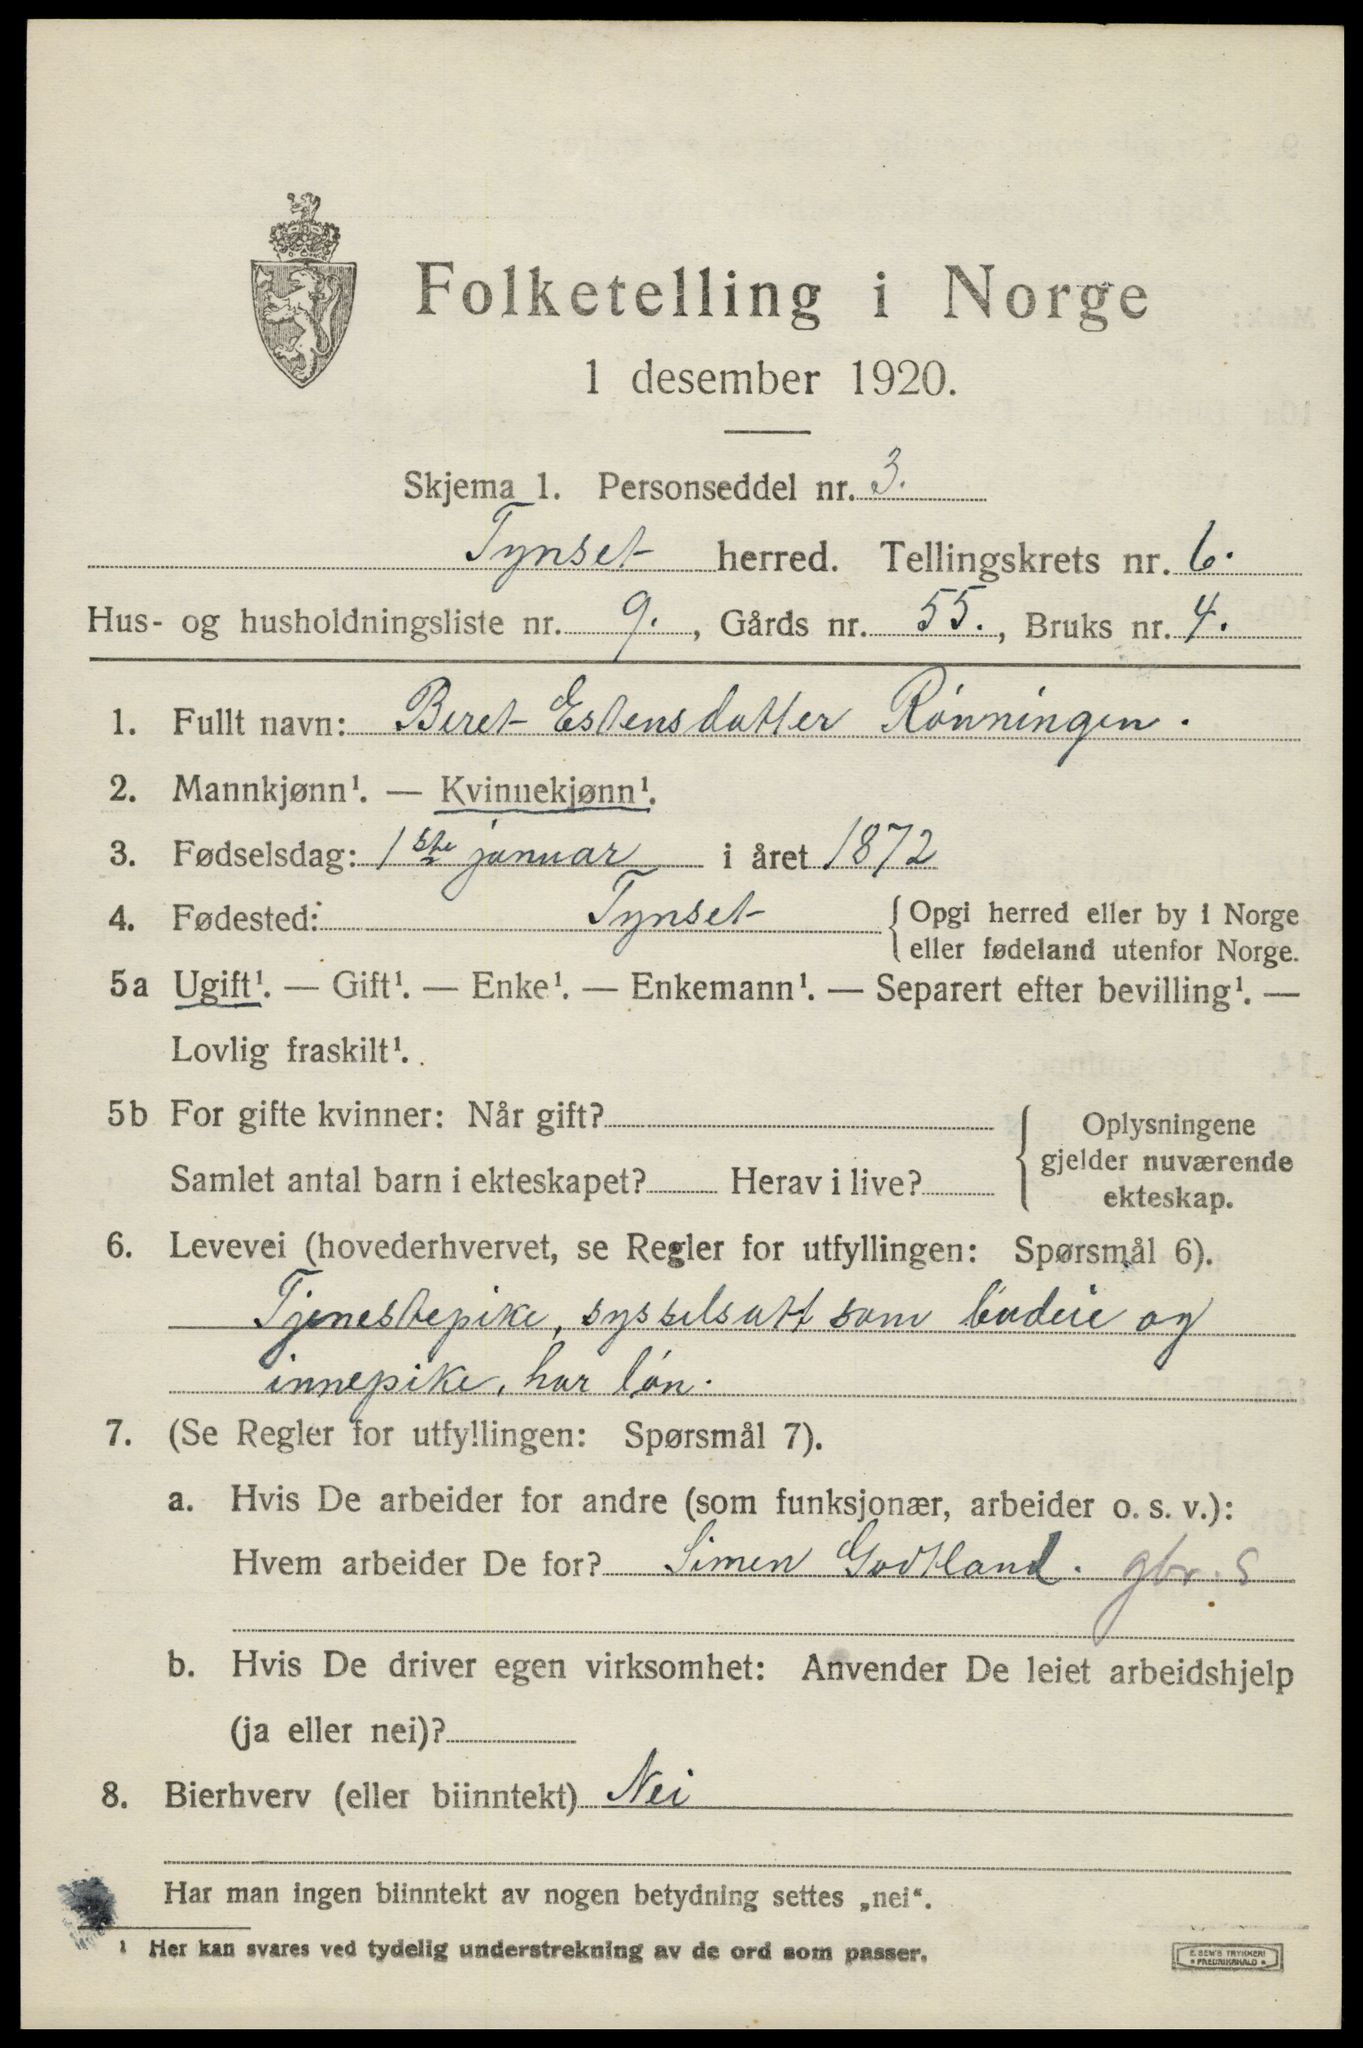 Folketelling i Norge
1 desember 1920.
Skjema 1. Personseddel nr. 3.
Tynset herred. Tellingskrets nr. 6.
Hus- og husholdningsliste nr. 9., Gårds nr. 55., Bruks nr. 4.
1. Fullt navn: Beret Estensdatter Rønningen.
2. Mannkjønn¹. — Kvinnekjønn¹.
3. Fødselsdag: 1ste januar i året 1872
4. Fødested: Tynset { Opgi herred eller by i Norge
eller fødeland utenfor Norge.
5a Ugift¹. — Gift¹. — Enke¹. — Enkemann¹. — Separert efter bevilling¹. —
Lovlig fraskilt¹.
5b For gifte kvinner: Når gift? { Oplysningene
gjelder nuværende
Samlet antal barn i ekteskapet? Herav i live?
ekteskap.
6. Levevei (hovederhvervet, se Regler for utfyllingen: Spørsmål 6).
Tjenestepike, sysselsatt som budeie og
innepike, har løn.
7. (Se Regler for utfyllingen: Spørsmål 7).
a. Hvis De arbeider for andre (som funksjonær, arbeider o. s. v.):
Hvem arbeider De for? Simen Godtland. gbr. S
b. Hvis De driver egen virksomhet: Anvender De leiet arbeidshjelp
(ja eller nei)?
8. Bierhverv (eller biinntekt) Nei
Har man ingen biinntekt av nogen betydning settes „nei".
¹ Her kan svares ved tydelig understrekning av de ord som passer.
E. SEM'S TRYKKERI
FREDRIKSHALD